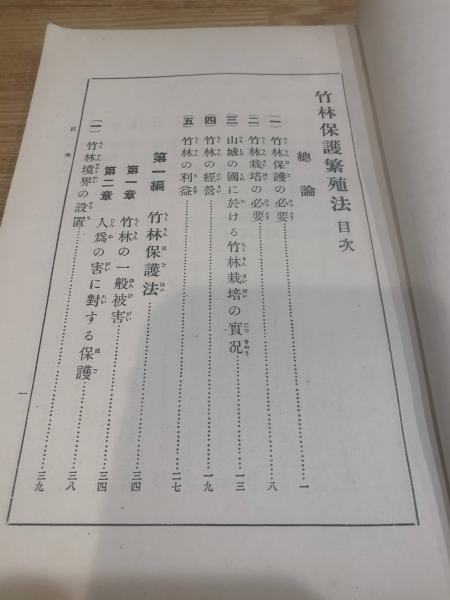 竹林保護繁殖法 目次
總論
(一) 竹林保護の必要……一
(二) 竹林栽培の必要……八
(三) 山城の國に於ける竹林栽培の實况……一三
(四) 竹林の經營……一九
(五) 竹林の利益……二七
第一編 竹林保護法
第一章 竹林の一般被害……三四
第二章 人爲の害に對する保護……三四
(一) 竹林境界の設置……三八
三九
目次
一